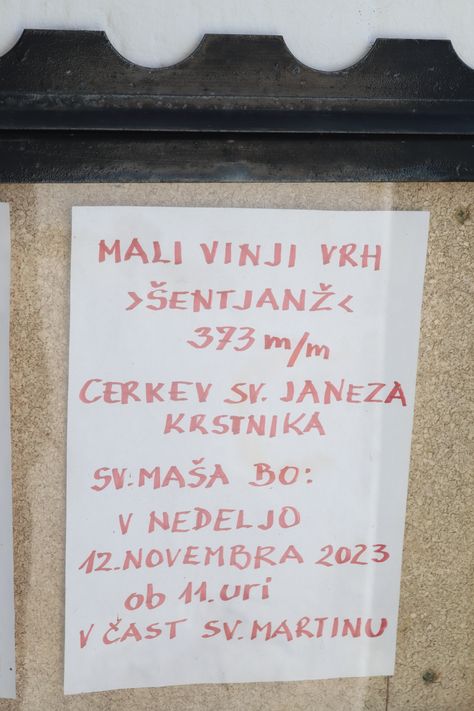 MALI VINJI VRH
>ŠENTJANŽ<
373 m/m
CERKEV SV. JANEZA
KRSTNIKA
SV. MAŠA BO:
V NEDELJO
12. NOVEMBRA 2023
ob 11. uri
V ČAST SV. MARTINU